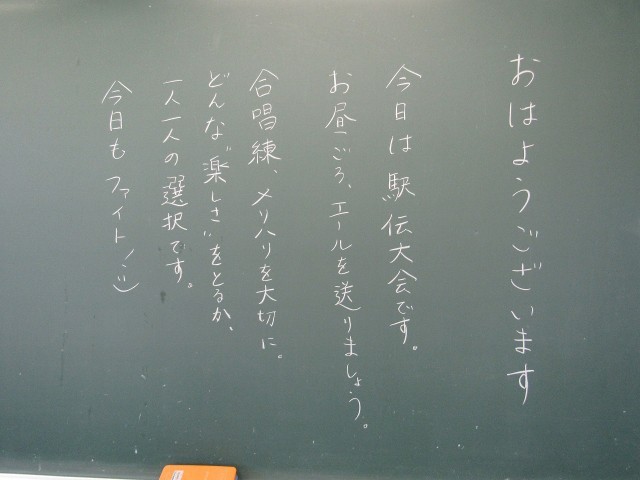 おはようございます
今日は駅伝大会です。
お昼ごろ、エールを送りましょう。
合唱練、メリハリを大切に。
どんな“楽しさ”をとるか、
一人一人の選択です。
今日もファイト！:)